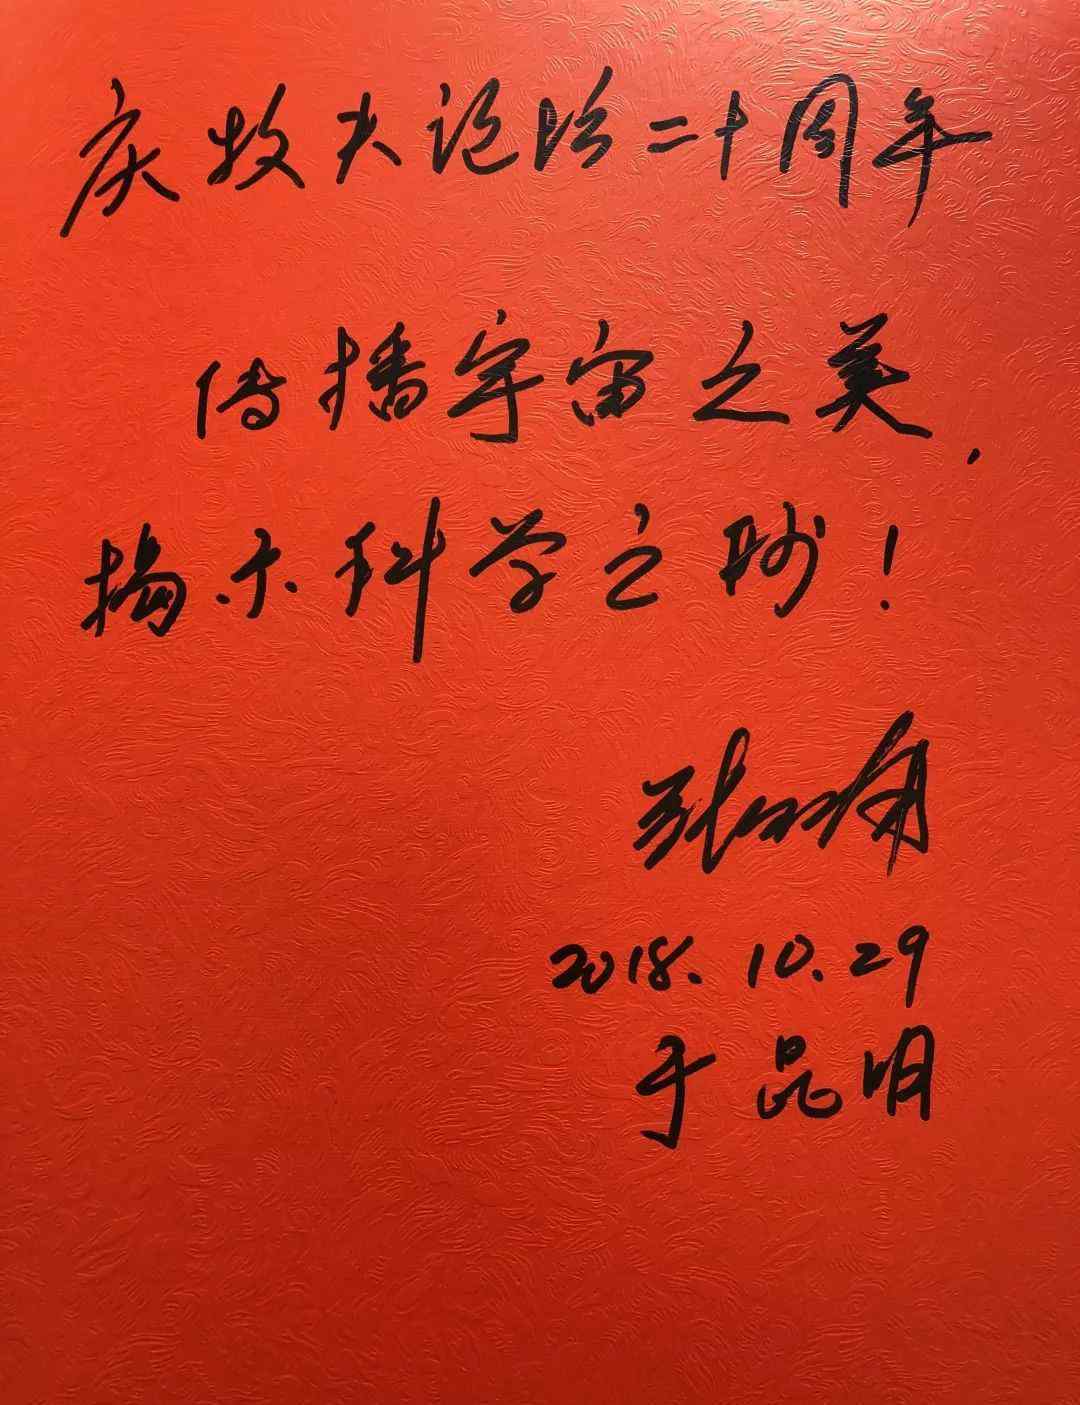 庆牧夫论坛二十周年
传播宇宙之美,
揭示科学之妙!
张双南
2018.10.29
于昆明